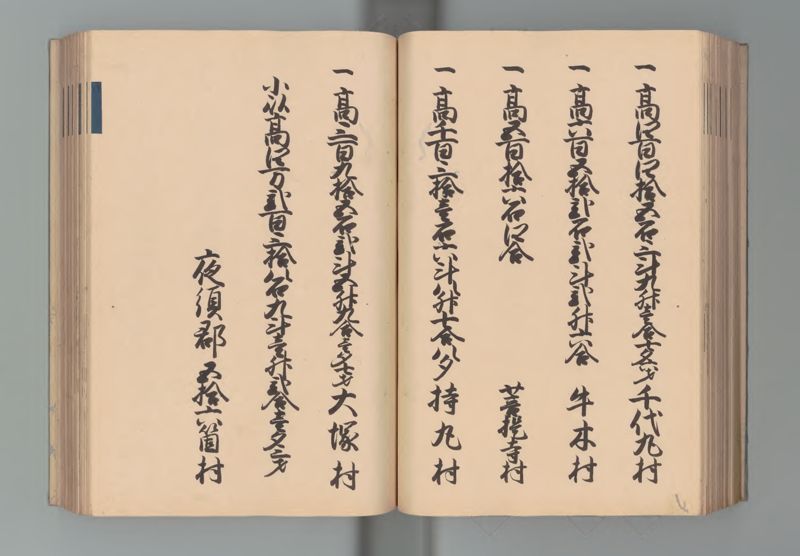 一高四百四拾五石三斗九升壱合七夕六才千代丸村
一高六百五拾弐石弐斗弐升六合 牛木村
一高五百拾六石四合 菩提寺村
一高千百三拾壱石六斗八升七合八夕 持丸村
一高三百九拾五石弐斗五升九合壱夕七才大塚村
小以高四万弐百三拾八石九斗壱升弐合壱夕三才
夜須郡 五拾六箇村